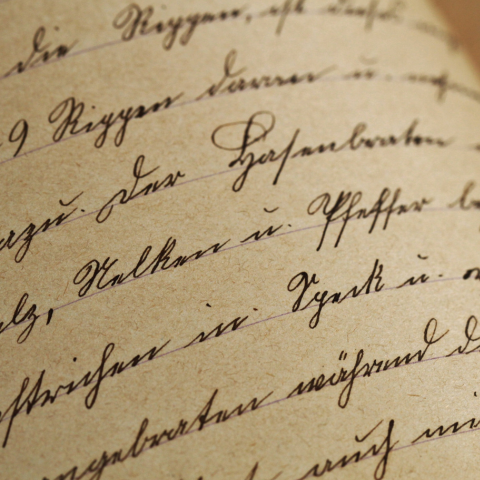 die Rippen, ist dieses
9 Rippen daran u.
dazu. Der Hasenbraten
Salz, Nelken u. Pfeffer be
estrichen in Speck u.
angebraten während d
auch mi